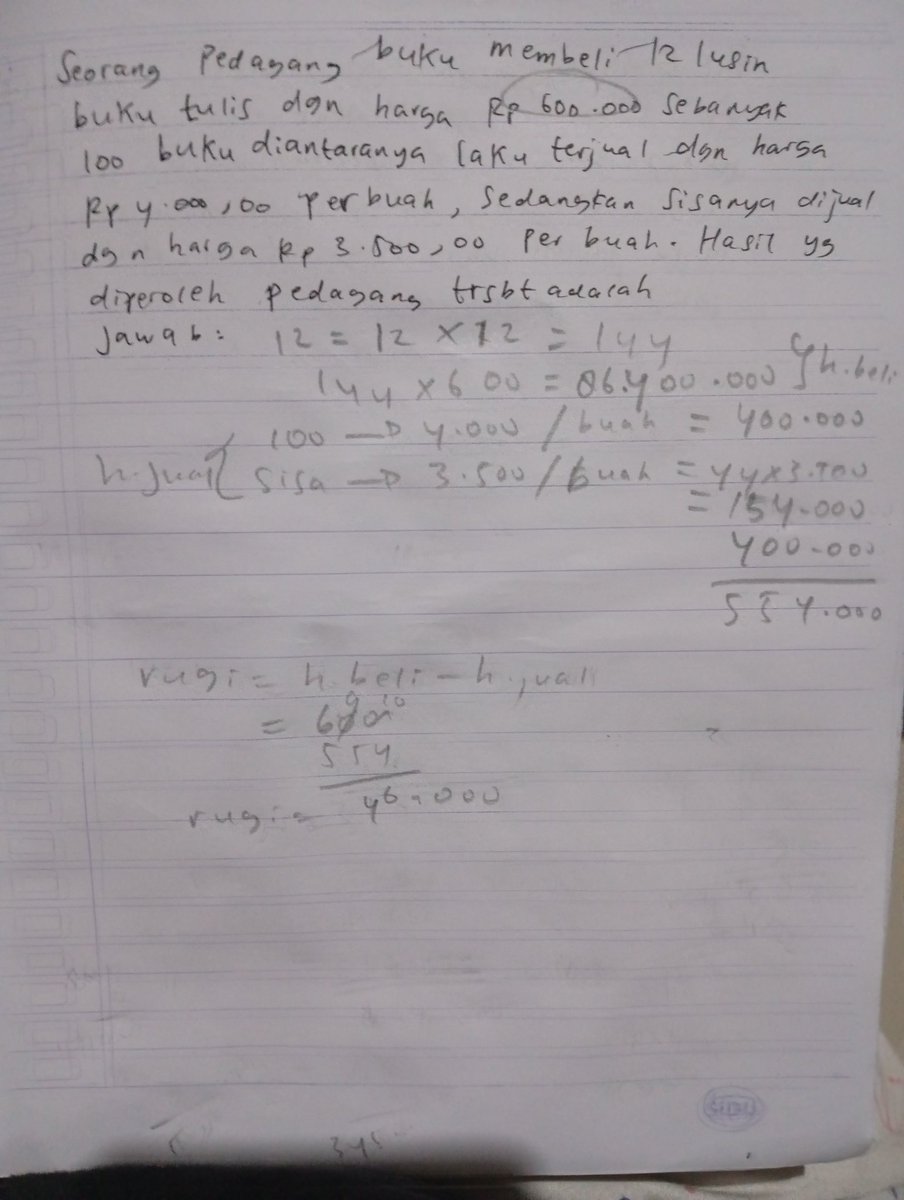 Seorang Pedagang buku membeli 12 lusin
buku tulis dgn harga Rp 600.000 sebanyak
100 buku diantaranya laku terjual dgn harga
Rp 4.000,00 perbuah, sedangkan sisanya dijual
dgn harga Rp 3.500,00 per buah. Hasil yg
diperoleh pedagang trsbt adalah
Jawab: 12 = 12 × 12 = 144
144 × 600 = 86.400.000 } h.beli
100 → 4.000 / buah = 400.000
h.jual { sisa → 3.500 / buah = 44×3.500
= 154.000
400.000
554.000
rugi = h.beli - h.jual
9 10
= 600
554
rugi = 46.000
SIDU
345